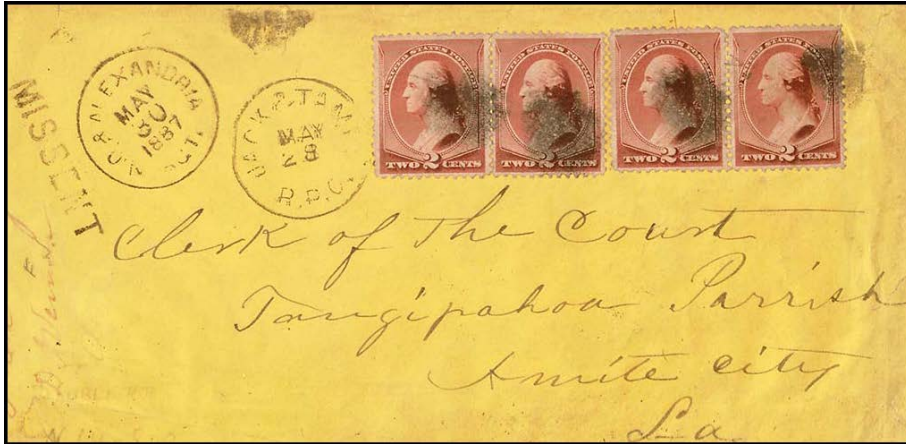 MISSENT
N.O. & ALEXANDRIA
MAY
30
1887
JACK & TAMPA
MAY
28
R.P.O.
UNITED STATES POSTAGE
TWO 2 CENTS
UNITED STATES POSTAGE
TWO 2 CENTS
UNITED STATES POSTAGE
TWO 2 CENTS
UNITED STATES POSTAGE
TWO 2 CENTS
Clerk of The Court
Tangipahoa Parrish
Amite City
La